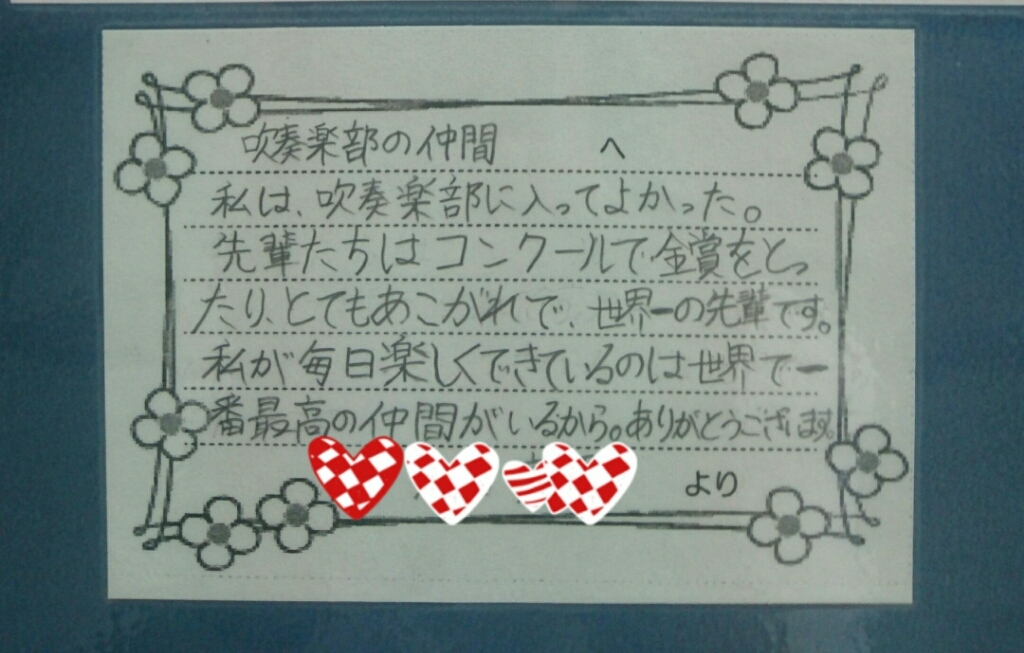 吹奏楽部の仲間 へ
私は、吹奏楽部に入ってよかった。
先輩たちはコンクールで金賞をとっ
たり、とてもあこがれで、世界一の先輩です。
私が毎日楽しくできているのは世界で一
番最高の仲間がいるから。ありがとうございます。
より